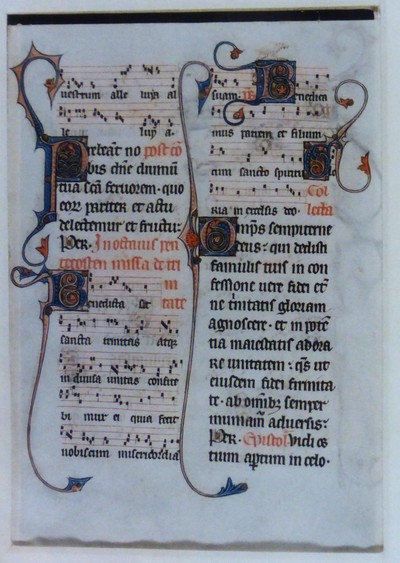 nostrum alle luya al
le luy a.
Prebeat no post cō
bis dn̄e diuinum
tua sc̄a feruorem. quo
eoꝝ pariter et actu
delectemur et fructu.
Per. In octauis pen
tecosten missa de tri
ni
Benedicta sit tate
sancta trinitas atqꝫ
indiuisa unitas confite
bi mur ei quia fecit
nobiscum misericordia
suam. Benedica
mus patrem et filium
cum sancto spiritu
Col
ria in excelsis deo. lecta
Omp̄s sempiterne
deus. qui dedisti
famulis tuis in con
fessione uere fidei et̄
ne trinitatis gloriam
agnoscere. et in potē
tia maiestatis adora
re unitatem. qs̄ ut
eiusdem fidei firmita
te. ab omībꝫ semper
muniam̄ aduersis.
Per. Epistol̄ Vidi os
tium aptum in celo.